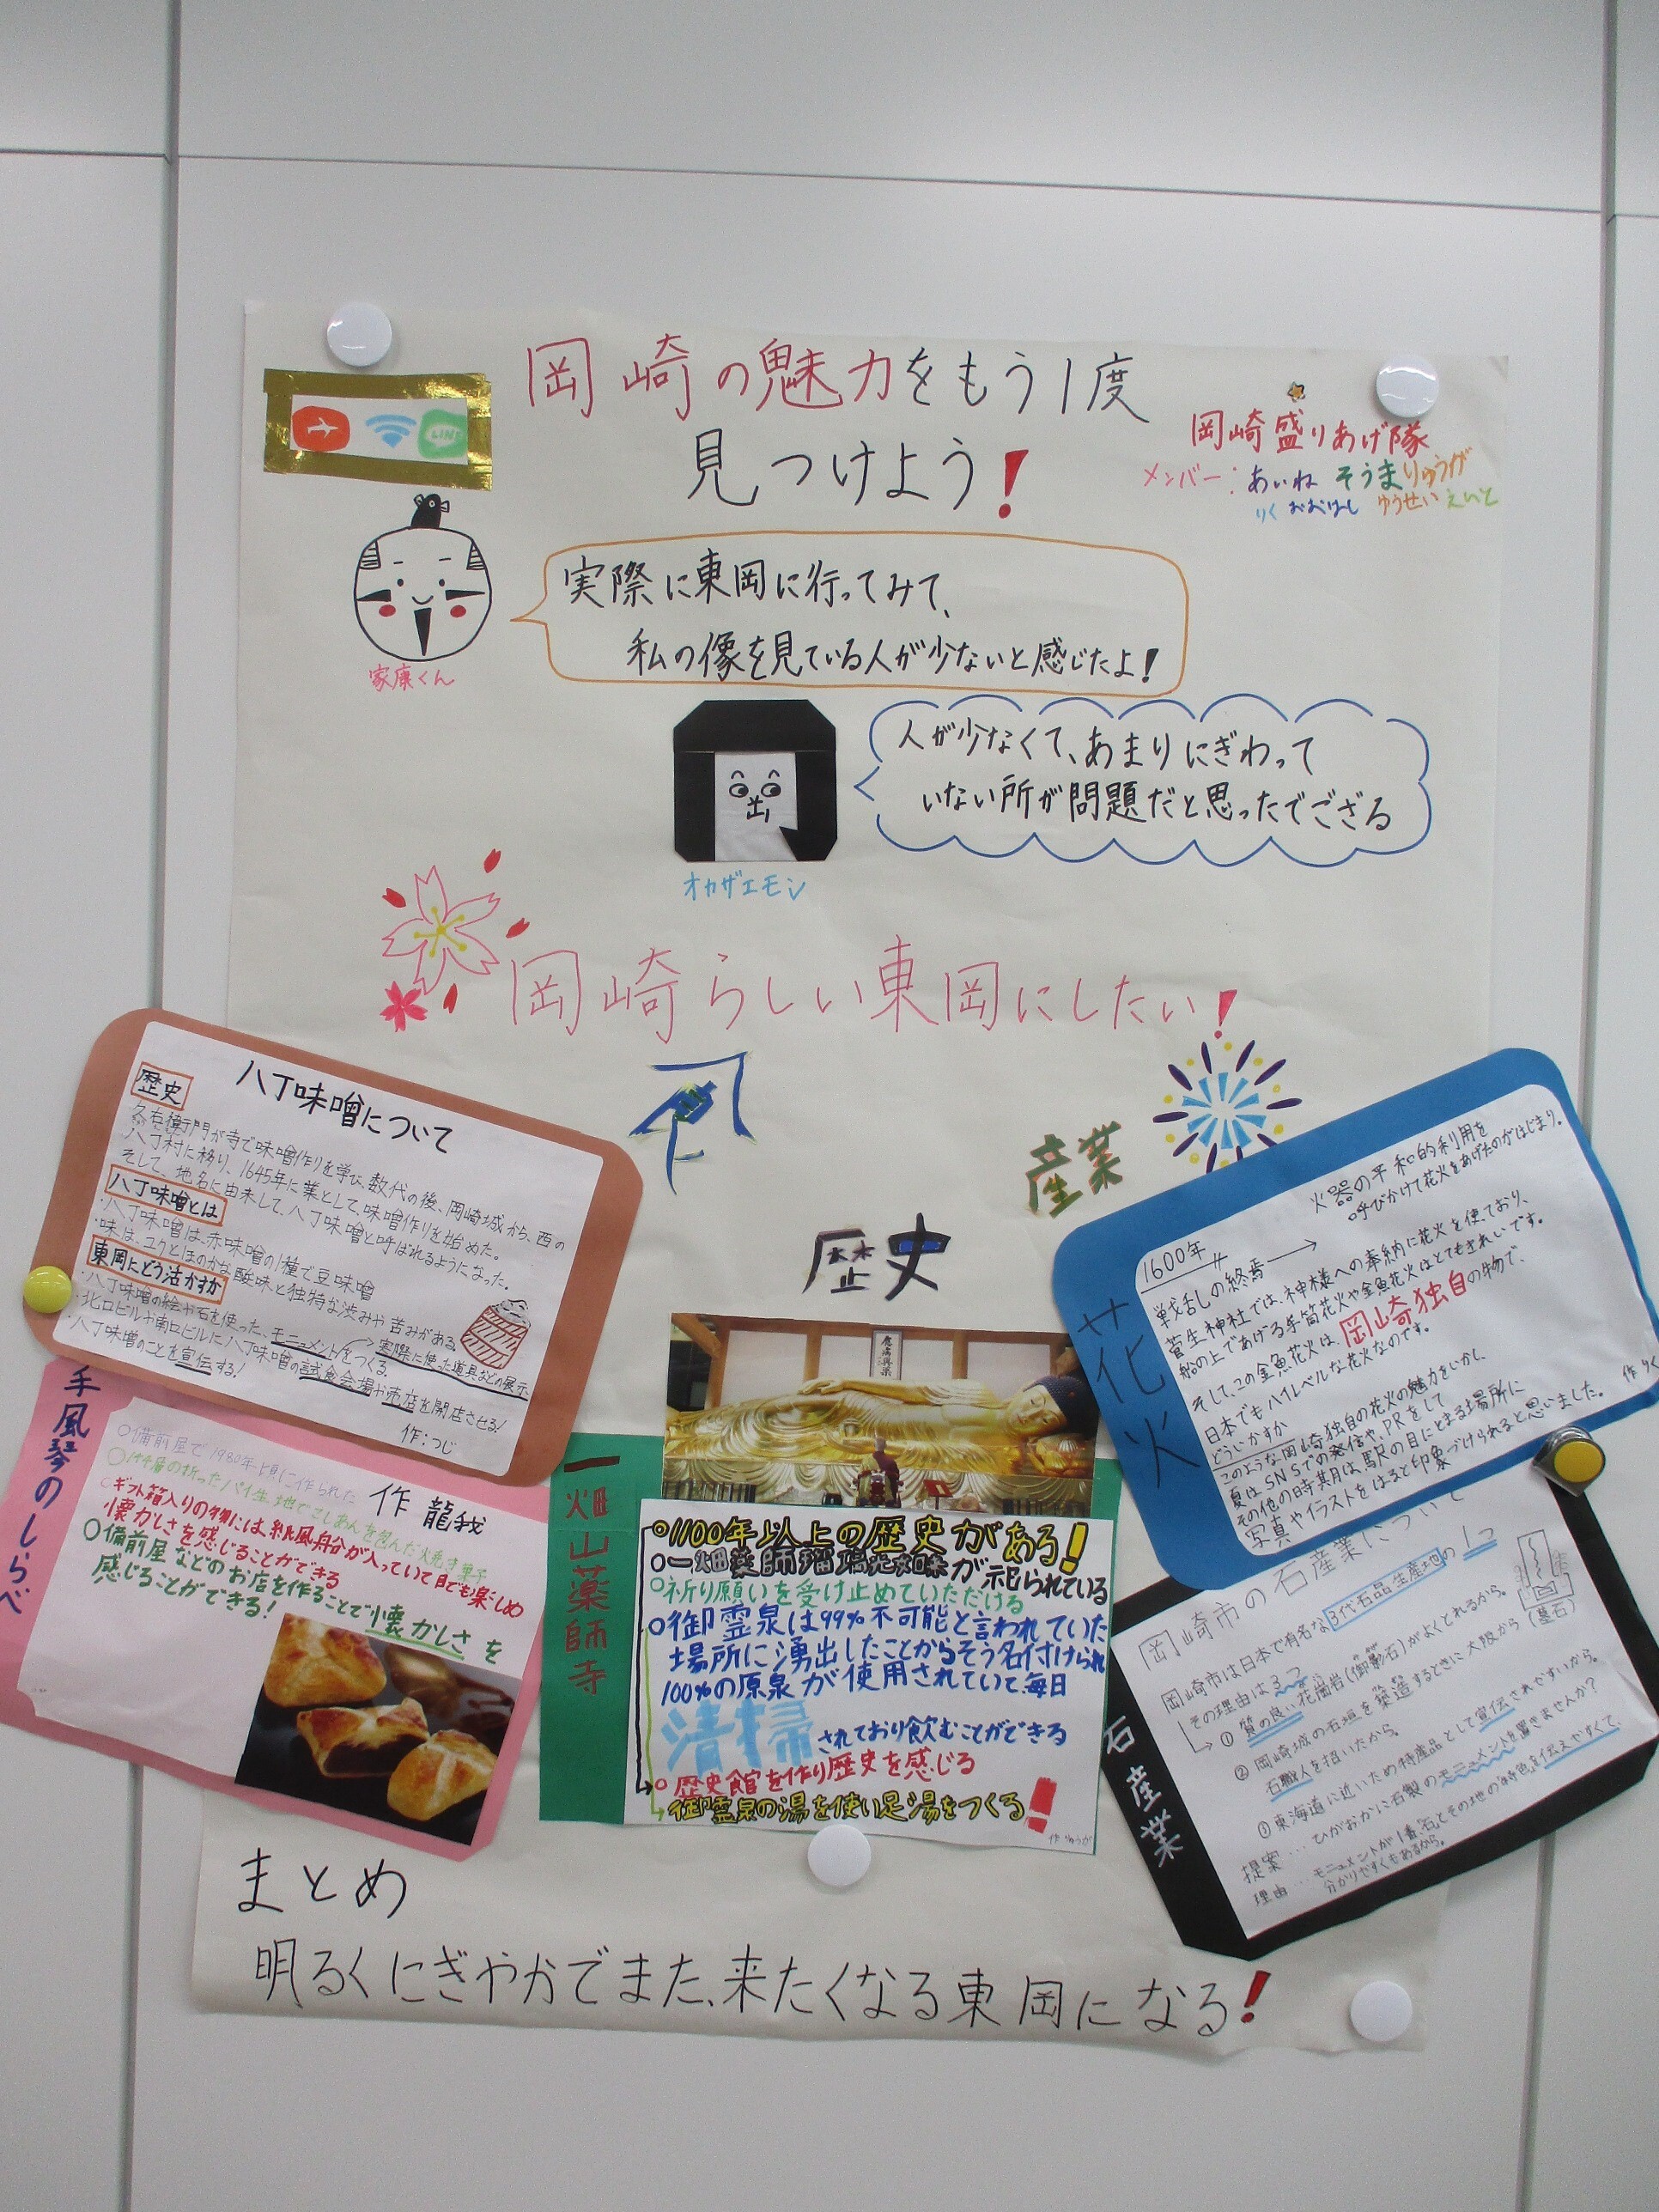 岡崎の魅力をもう1度
見つけよう!
LINE
岡崎盛りあげ隊
メンバー:あいね そうま りゅうが
りく おおはし ゆうせい えいと
実際に東岡に行ってみて、
私の像を見ている人が少ないと感じたよ!
家康くん
人が少なくて、あまりにぎわって
いない所が問題だと思ったでござる
オカザエモン
岡崎らしい東岡にしたい!
八丁味噌について
歴史
久右衛門が寺で味噌作りを学び、数代の後、岡崎城から、西の
八丁村に移り、1645年に業として、味噌作りを始めた。
そして、地名に由来して、八丁味噌と呼ばれるようになった。
八丁味噌とは
・八丁味噌は、赤味噌の1種で豆味噌
・味は、コクとほのかな酸味と独特な渋みや苦みがある
東岡にどう活かすか
・八丁味噌の絵や石を使った、モニュメントをつくる
→実際に使った道具などの展示
・北口ビルや南口ビルに八丁味噌の試食会場や売店を開店させる!
・八丁味噌のことを宣伝する!
作:つじ
手風琴のしらべ
○備前屋で1980年頃に作られた
作 龍我
層の折ったパイ生地でこしあんを包んだ火焼き菓子
○ギフト箱入りの物には、紙風船が入っていて目でも楽しめ
懐かしさを感じることができる
○備前屋などのお店を作ることで懐かしさを
感じることができる!
歴史
一畑山薬師寺
○1100年以上の歴史がある!
○一畑薬師瑠璃光如来が祀られている
○祈り願いを受け止めていただける
○御霊泉は99%不可能と言われていた
場所に湧出したことからそう名付けられ
100%の原泉が使用されていて、毎日
清掃されており飲むことができる
○歴史館を作り歴史を感じる
御霊泉の湯を使い足湯をつくる!
作 りゅうが
産業
花火
火器の平和的利用を
呼びかけて花火をあげたのがはじまり。
1600年
戦乱しの終焉
菅生神社では、神様への奉納に花火を使っており、
船の上であげる手筒花火や金魚花火はとてもきれいです。
そして、この金魚花火は、岡崎独自の物で、
日本でもハイレベルな花火なのです。
どういかすか
このような岡崎独自の花火の魅力をいかし、
夏はSNSでの発信や、PRをして
その他の時期は、駅の目にとまる場所に
写真やイラストをはると印象づけられると思いました。
作 りく
石産業
岡崎市の石産業について
岡崎市は日本で有名な3代石品生産地の1つ
その理由は3つ
①質の良い花崗岩(御影石)がよくとれるから。
②岡崎城の石垣を築造するときに大阪から
石職人を招いたから。
(墓石)
③東海道に近いため特産品として宣伝されやすいから。
提案…ひがおかに石製のモニュメントを置きませんか?
理由…モニュメントが1番、石とその地の特色を伝えやすくて、
分かりやすくもあるから。
まとめ
明るくにぎやかでまた、来たくなる東岡になる!